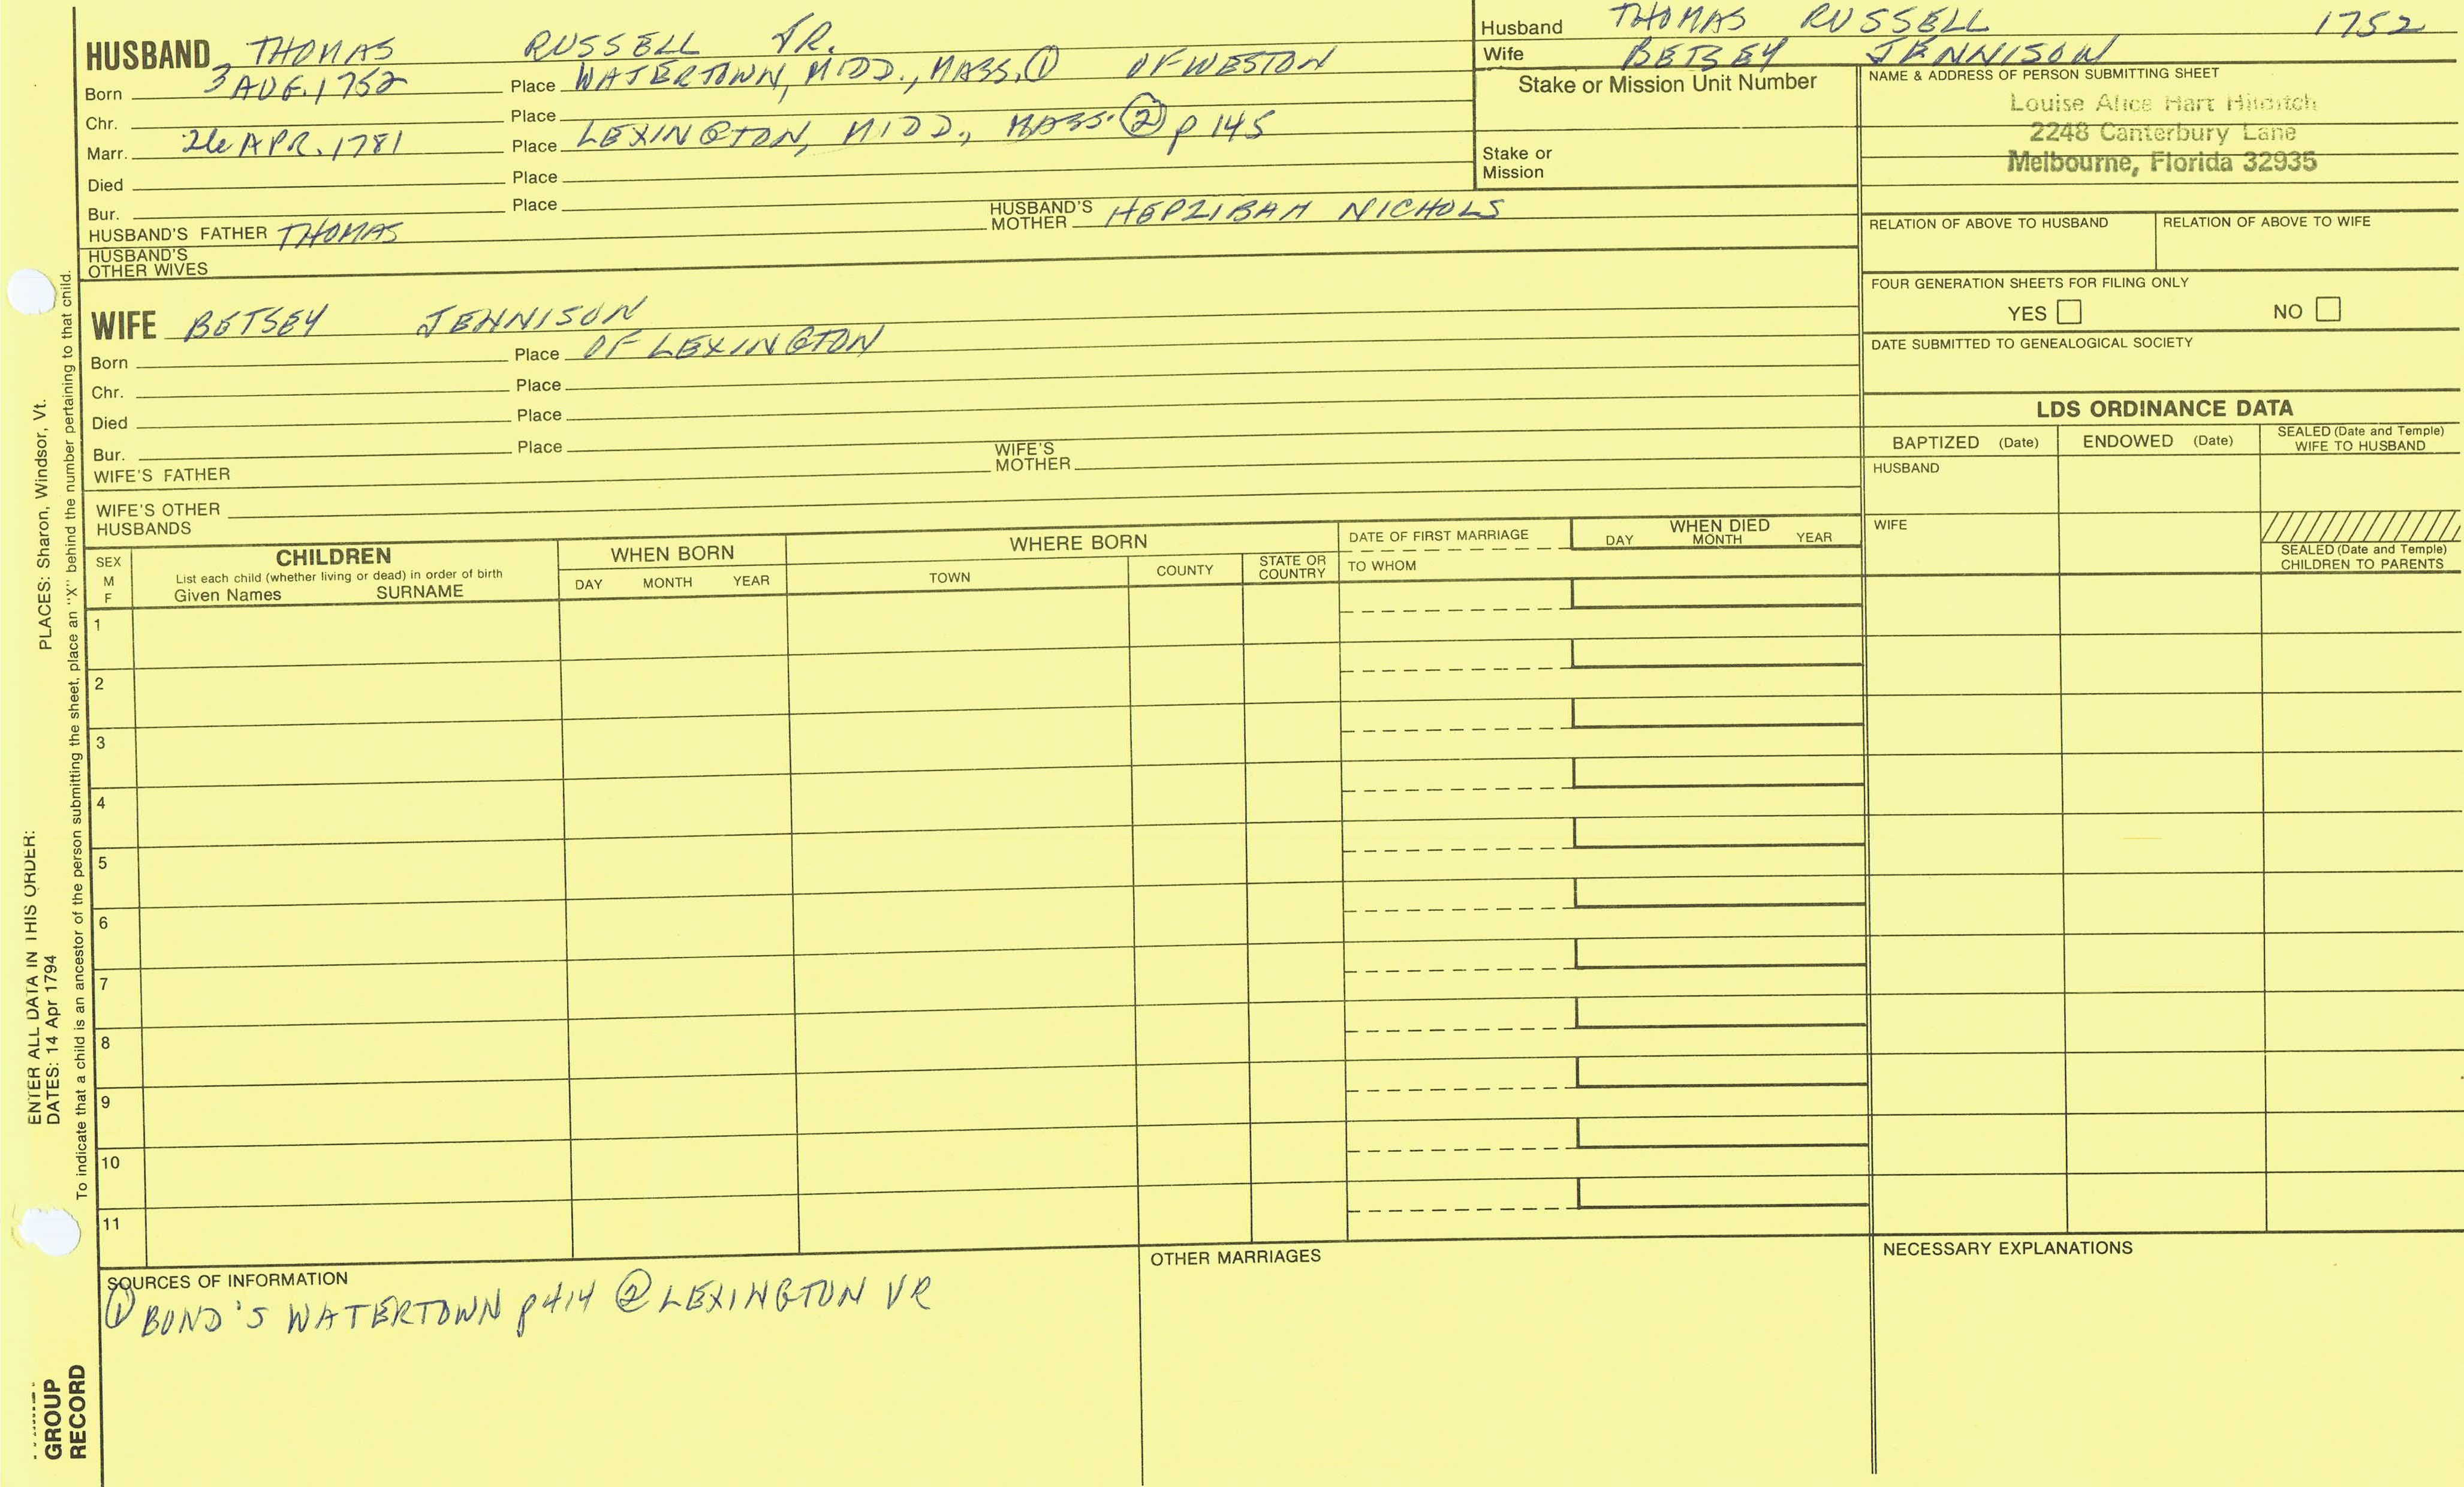 HUSBAND THOMAS RUSSELL JR.
Born 3 AUG. 1752 Place WATERTOWN, MIDD., MASS. ① OF WESTON
Chr. Place
Marr. 26 APR. 1781 Place LEXINGTON, MIDD., MASS. ② p 145
Died Place
Bur. Place
HUSBAND'S FATHER THOMAS HUSBAND'S MOTHER HEPZIBAH NICHOLS
HUSBAND'S OTHER WIVES
Husband THOMAS RUSSELL 1752
Wife BETSEY JENNISON
Stake or Mission Unit Number
Stake or
Mission
NAME & ADDRESS OF PERSON SUBMITTING SHEET
Louise Alice Hart
2248 Canterbury Lane
Melbourne, Florida 32935
RELATION OF ABOVE TO HUSBAND RELATION OF ABOVE TO WIFE
FOUR GENERATION SHEETS FOR FILING ONLY
YES NO
DATE SUBMITTED TO GENEALOGICAL SOCIETY
WIFE BETSEY JENNISON
Born Place OF LEXINGTON
Chr. Place
Died Place
Bur. Place
WIFE'S FATHER WIFE'S MOTHER
WIFE'S OTHER
HUSBANDS
LDS ORDINANCE DATA
BAPTIZED (Date) ENDOWED (Date) SEALED (Date and Temple) WIFE TO HUSBAND
HUSBAND
WIFE
SEALED (Date and Temple)
CHILDREN TO PARENTS
SEX
M
F
CHILDREN
List each child (whether living or dead) in order of birth
Given Names SURNAME
WHEN BORN
DAY MONTH YEAR
WHERE BORN
TOWN COUNTY STATE OR COUNTRY
DATE OF FIRST MARRIAGE
TO WHOM
WHEN DIED
DAY MONTH YEAR
1
2
3
4
5
6
7
8
9
10
11
SOURCES OF INFORMATION
① BOND'S WATERTOWN p 414 ② LEXINGTON VR
OTHER MARRIAGES
NECESSARY EXPLANATIONS
ENTER ALL DATA IN THIS ORDER:
DATES: 14 Apr 1794 PLACES: Sharon, Windsor, Vt.
To indicate that a child is an ancestor of the person submitting the sheet, place an "X" behind the number pertaining to that child.
GROUP
RECORD